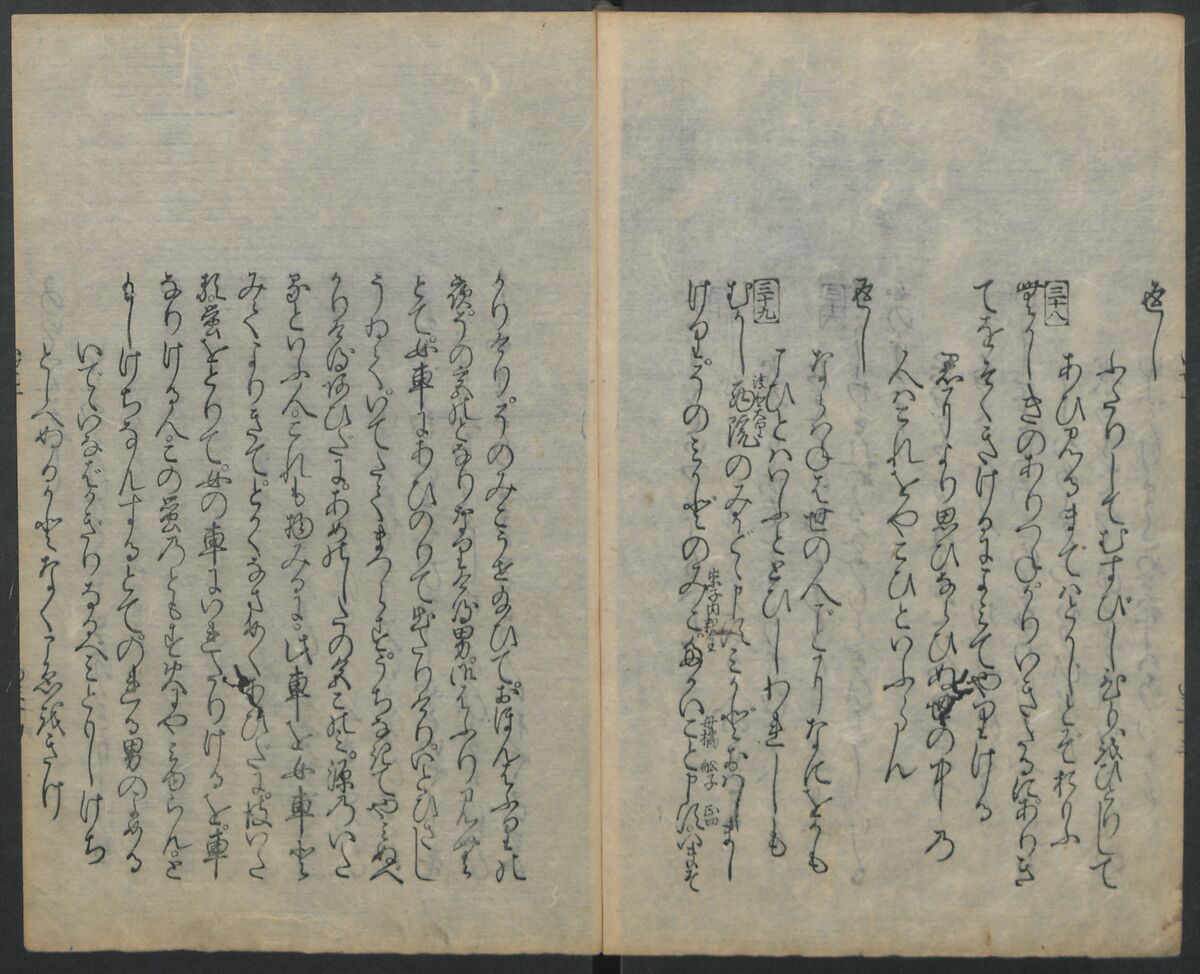 返し
ふたりしてむすびしひもをひとりして
あひ見るまではとかじとぞおもふ
三十八
むかしきのありつねがりいきたるにありき
てをそくきけるによみてやりける
君により思ひならひぬ世の中の
人はこれをやこひといふらん
返し
ならはねば世の人ごとになにをかも
こひとはいふととひしわれしも
三十九
むかし西院のみかどゝ申すみかどおはしまし
けりそのみかどのみこたかいこと申すいまそ
崇子内親王
母橘船子
かりけりそのみこうせ給ひておほんはふりの
夜その宮のとなりなりける男御はふり見んと
とて女車にあひのりて出たりけりいとひさし
うゐていてたてまつらずうちなきてやみぬべ
かりけるあひだにあめのしたの色このみ源のいた
るといふ人これも物みるに此車を女車と
みてよりきてとかくなまめくあひだに彼いた
る蛍をとりて女の車にいれたりけるを車
なりける人この蛍のともす火にや見ゆらんと
もしけちなんするとてのれる男のよめる
いでていなばかぎりなるべみともしけち
としへぬるかとなくこゑをきけ